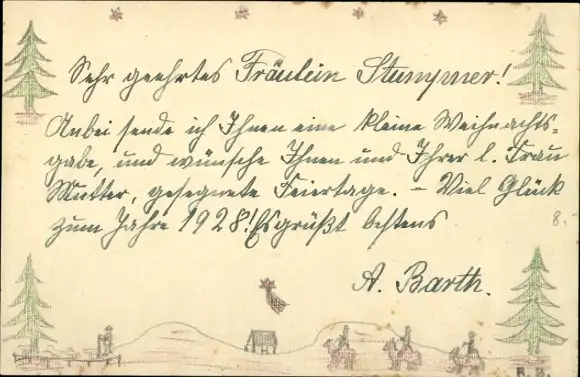 Sehr geehrtes Fräulein Stummer!
Anbei sende ich Ihnen eine kleine Weihnachts-
gabe, und wünsche Ihnen und Ihrer l. Frau
Mutter, gesegnete Feiertage. – Viel Glück
zum Jahre 1928! Es grüßt bestens
8.-
A. Barth.